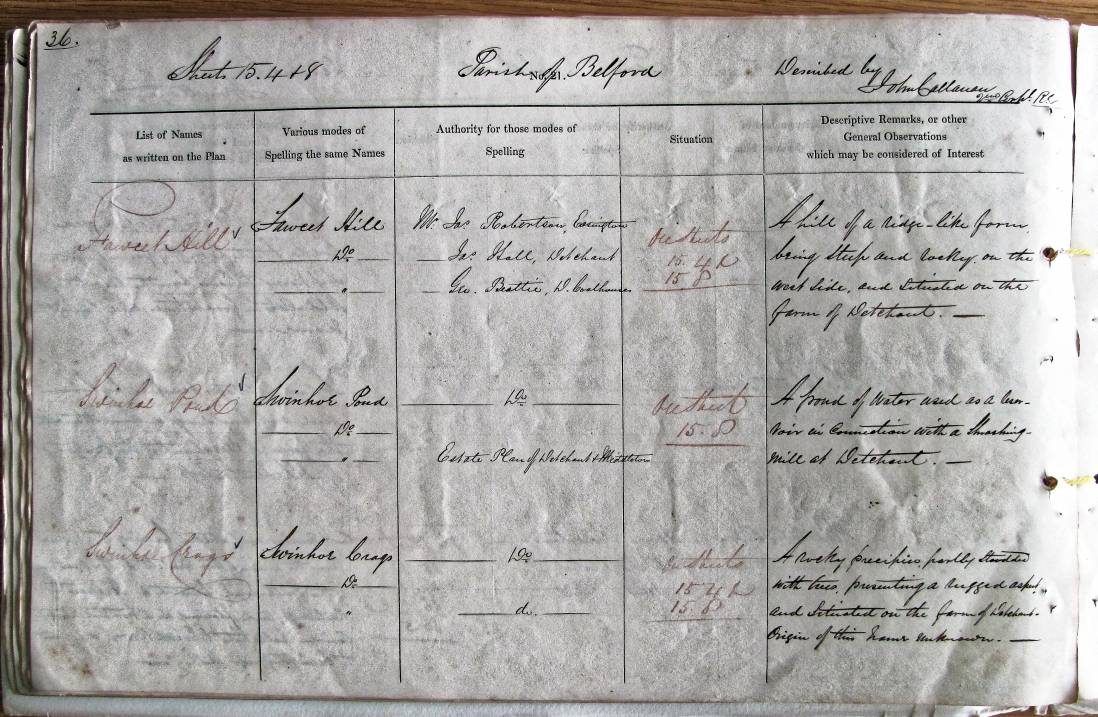 36.
Sheets 15. 4 & 8
Parish of Belford
No. 21.
Described by
John Callanan
2nd Corpl. R.E.
List of Names
as written on the Plan
Various modes of
Spelling the same Names
Authority for those modes of
Spelling
Situation
Descriptive Remarks, or other
General Observations
which may be considered of Interest
Fawcet Hill
Fawcet Hill
Do
"
Mr. Jas. Robertson, Easington
Jas. Hall, Detchant
Geo. Beattie, D. Coalhouses
On Sheets
15. 4 &
15 8
A hill of a ridge-like form,
being steep and rocky, on the
west side, and Situated on the
farm of Detchant. —
Swinhoe Pond
Swinhoe Pond
Do
"
Do
Estate Plan of Detchant & Middleton
On Sheet
15. 8
A pond of Water used as a Reser-
voir in Connection with a Thrashing-
Mill at Detchant. —
Swinhoe Crags
Swinhoe Crags
Do
"
Do
do.
On Sheets
15 4 &
15. 8
A rocky precipice, partly Studded
with trees, presenting a rugged aspect,
and Situated on the farm of Detchant.
Origin of this Name unknown. —